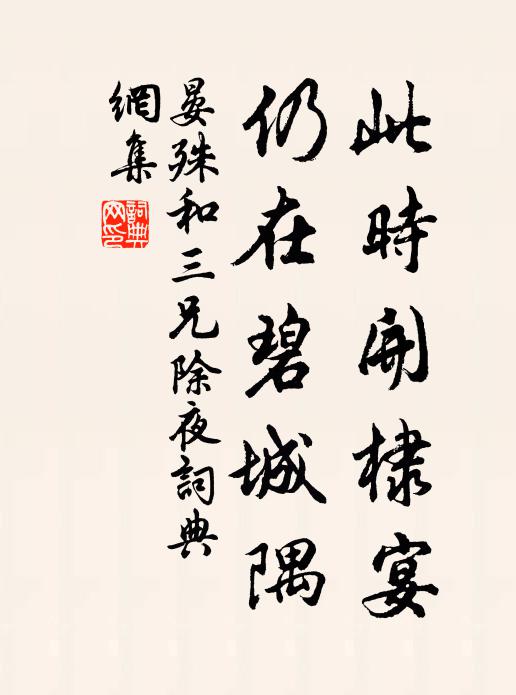 此時開棣宴
仍在碧城隅
晏殊和三兄除夜詞典
網集
詞典
网印